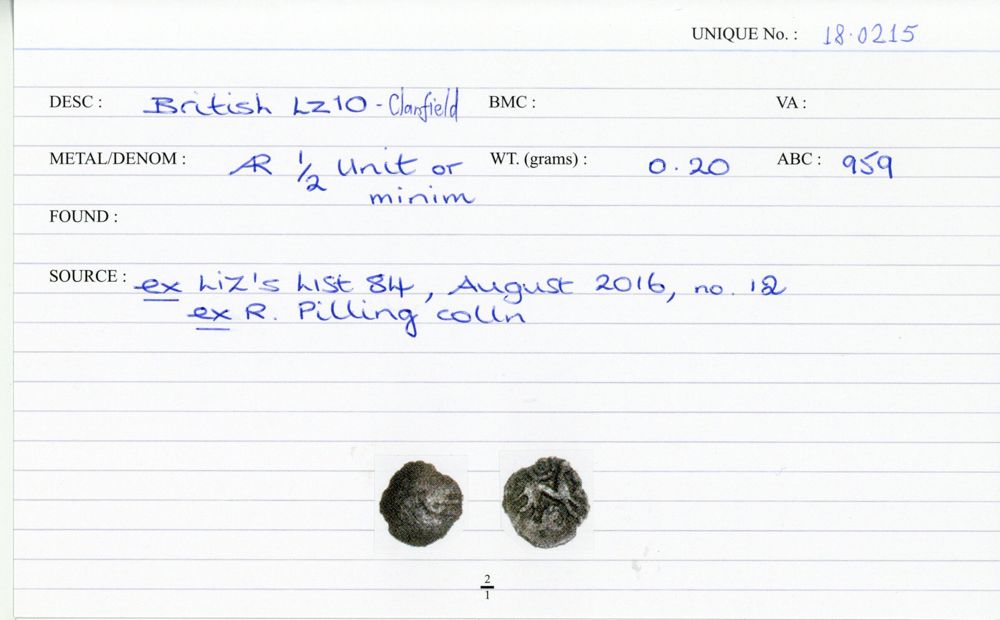 UNIQUE No. : 18.0215
DESC : British LZ10 - Clanfield BMC : VA :
METAL/DENOM : AR 1/2 Unit or minim WT. (grams) : 0.20 ABC : 959
FOUND :
SOURCE : ex Liz's List 84, August 2016, no. 12
ex R. Pilling colln
2/1